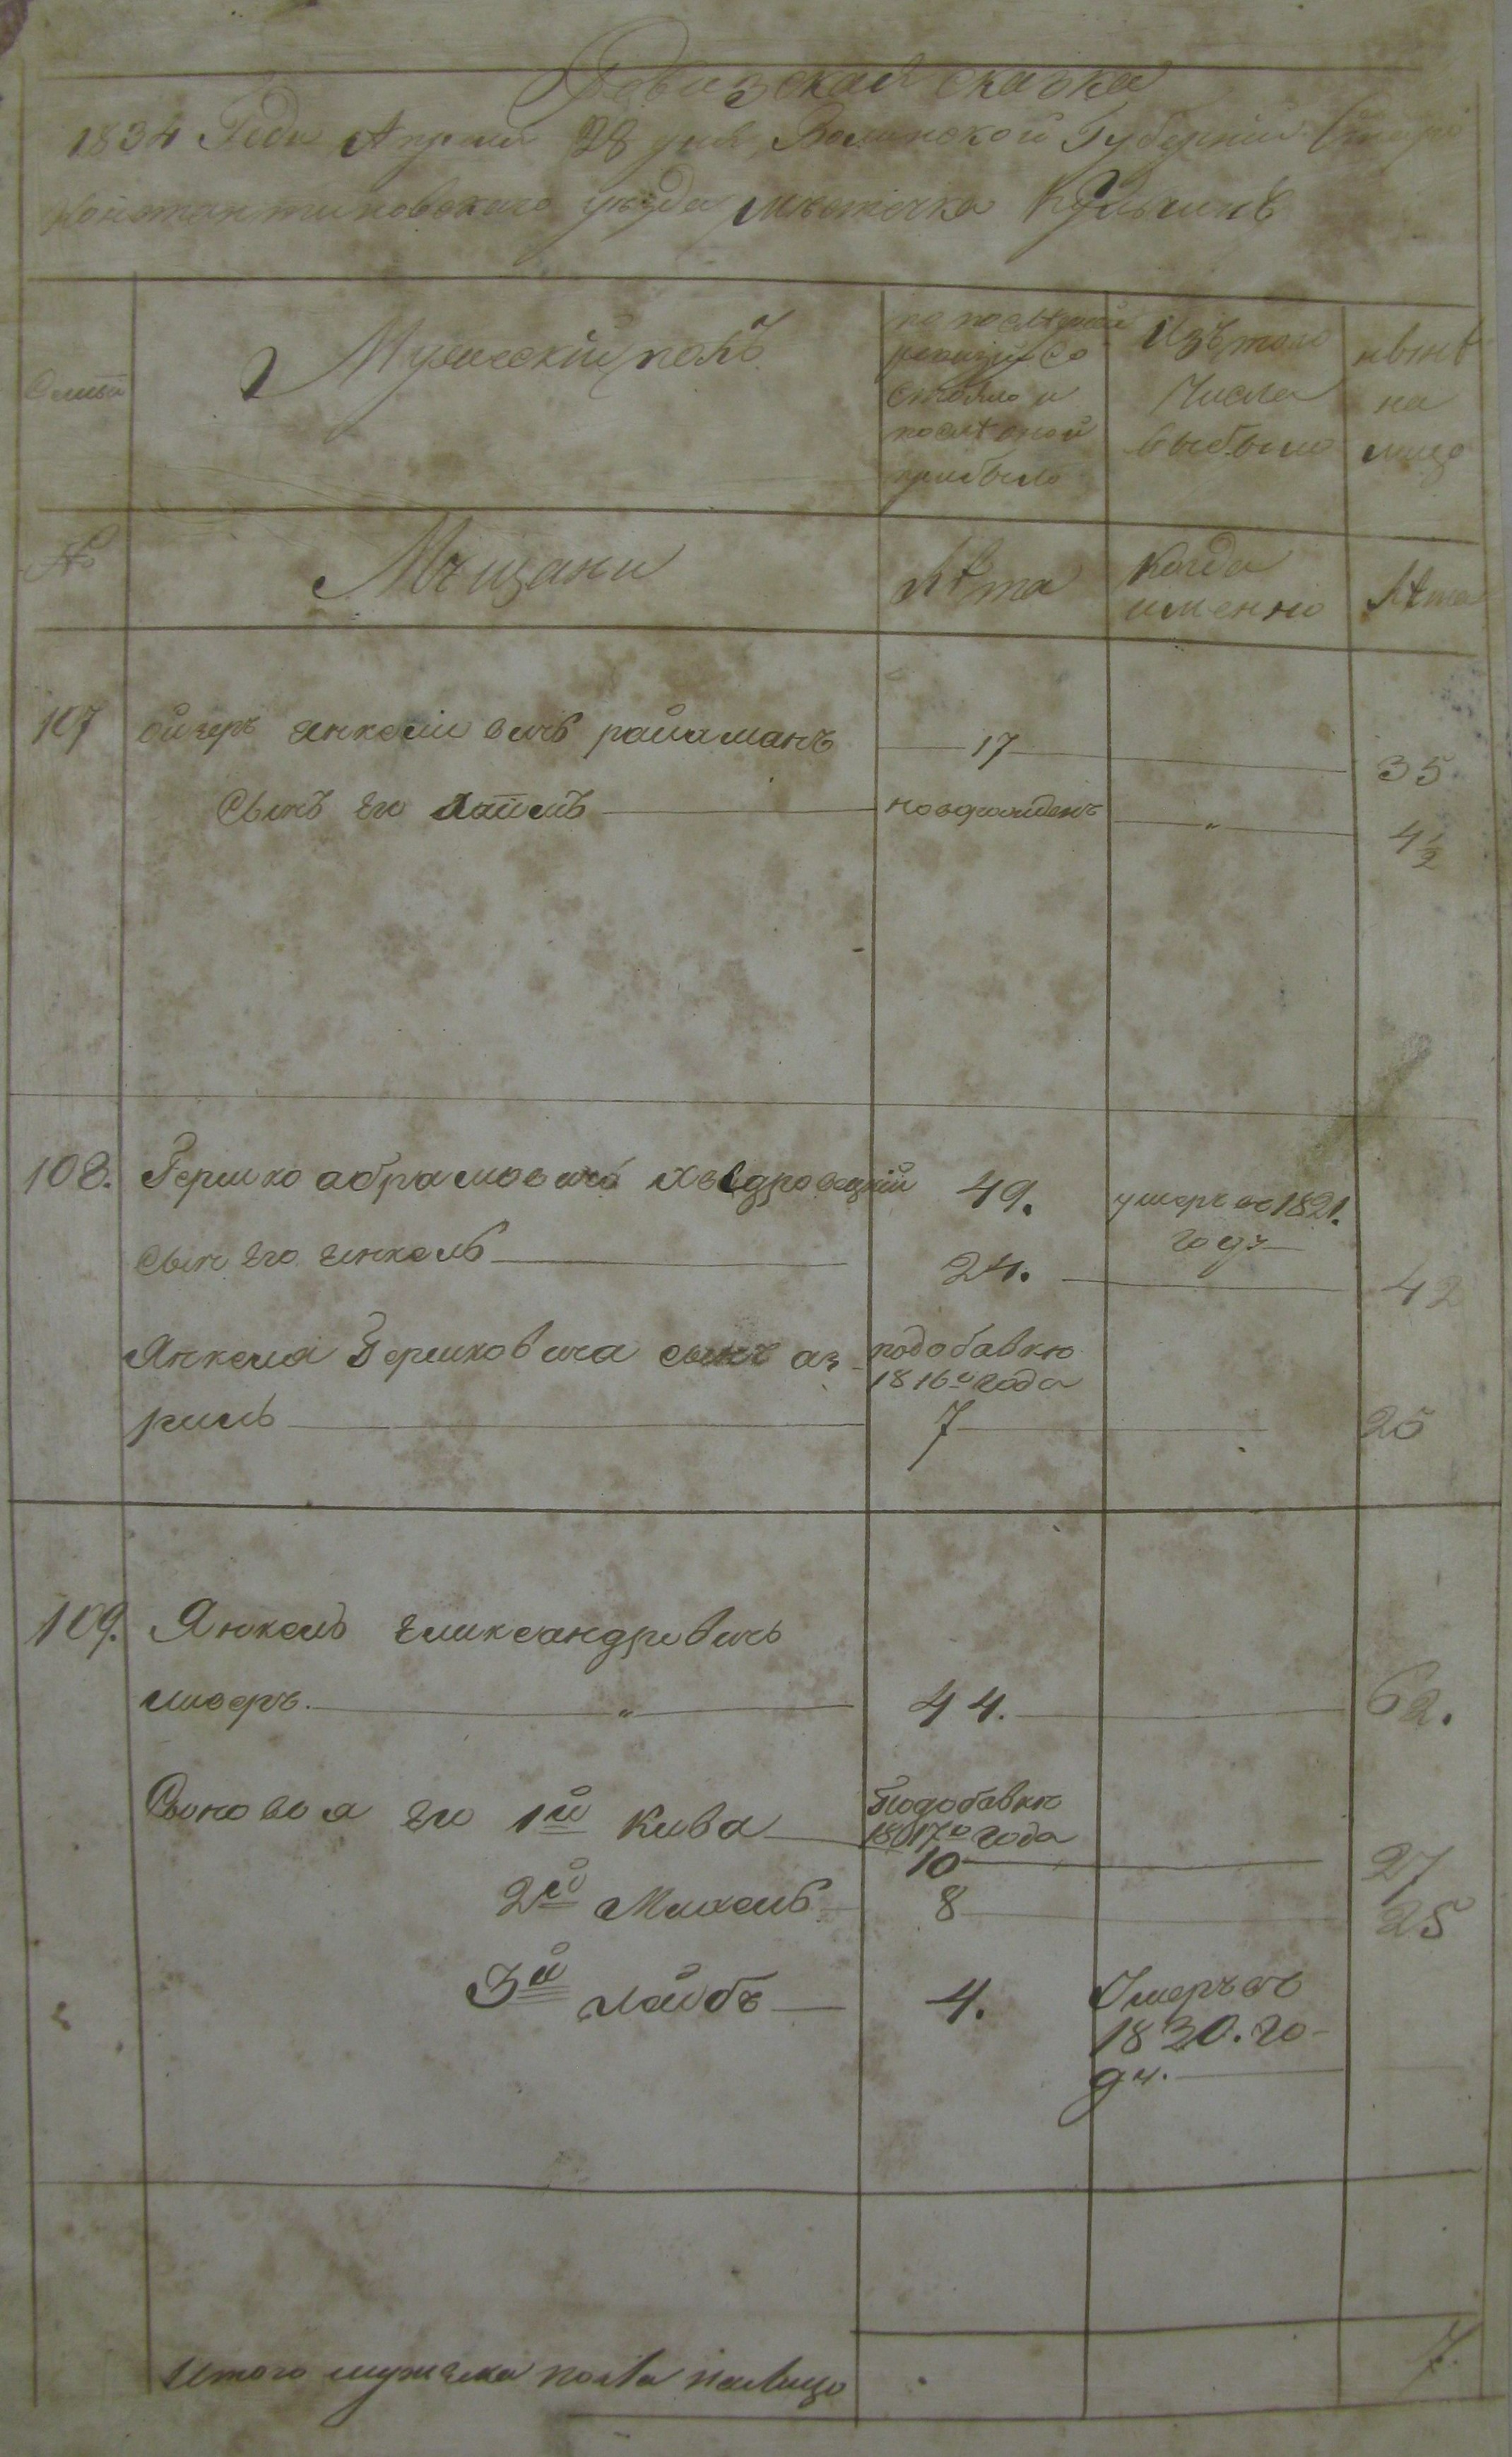 Ревизская сказка
1834 Года Апреля 28 дня Волынской Губернии Старо
Константиновского уезда местечка Кульчинъ
Семьи
Мужескій полъ
по последней
ревизіи со
стояло и
после оной
прибыло
Изъ того
числа
выбыло
ныне
на
лицо
№
Мещани
Лѣта
Когда
именно
Лѣта
107 ойзеръ янкелевичь
17
35
Сынъ его
новорожденъ
"
4½
108. Гершко абрамовичъ
49.
умеръ въ 1821.
году
сын его янкель
24.
42
Янкеля Гершковича сынъ аз
риль
подобавкю
1816го года
7
25
109. Янкель еликсандровичь
44.
62.
Сыновья его 1й Кива
Подобавкю
1817го года
10
27
2й Михель
8
25
3й лейбъ
4.
Умеръ въ
1830. го-
ду.
Итого мужеска пола налицо
7.